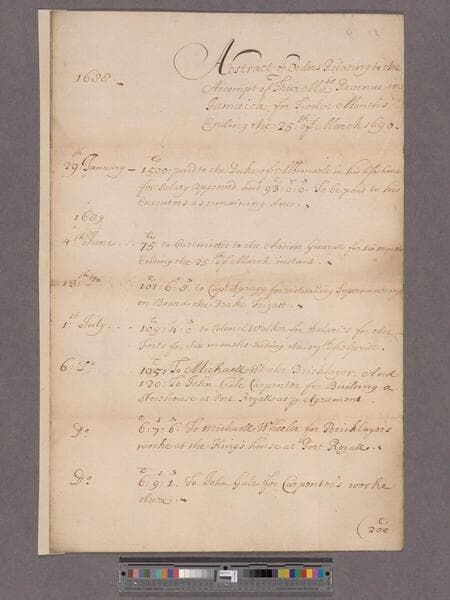 1688
Abstract of Orders Relating to the
Accompt of Their Ma.ts Revenue in
Jamaica, for Twelve Months
Ending the 25th of March 1690.
29th January - 1500 paid to the Duke of Albemarle in his life time
for Salary Approved and 93: 0: 0 To be paid to his
Executors as remaining due.
1689
4th June 75 to be remitted to the Auditor Generall for Six months
Ending the 25th of March instant.
13th Do 101: 6: 8 to Capt Spragg for victualling Supernumerarys
on Board the Drake Frigatt.
1st July 109: 4: 0 to Colonel Walker for Salaries for the
forts for Six months Ending the
6: Do 195: To Michaell Wheeler Bricklayer, And
120: To John Gale Carpenter for Building a
Storehouse at Port Royall as p Agreement
Do 6: 7: 6: To Michaell Wheeler for Bricklayers
worke at the Kings house at Port Royall.
Do 6: 9: 1: To John Gale for Carpenter's worke
there.
200